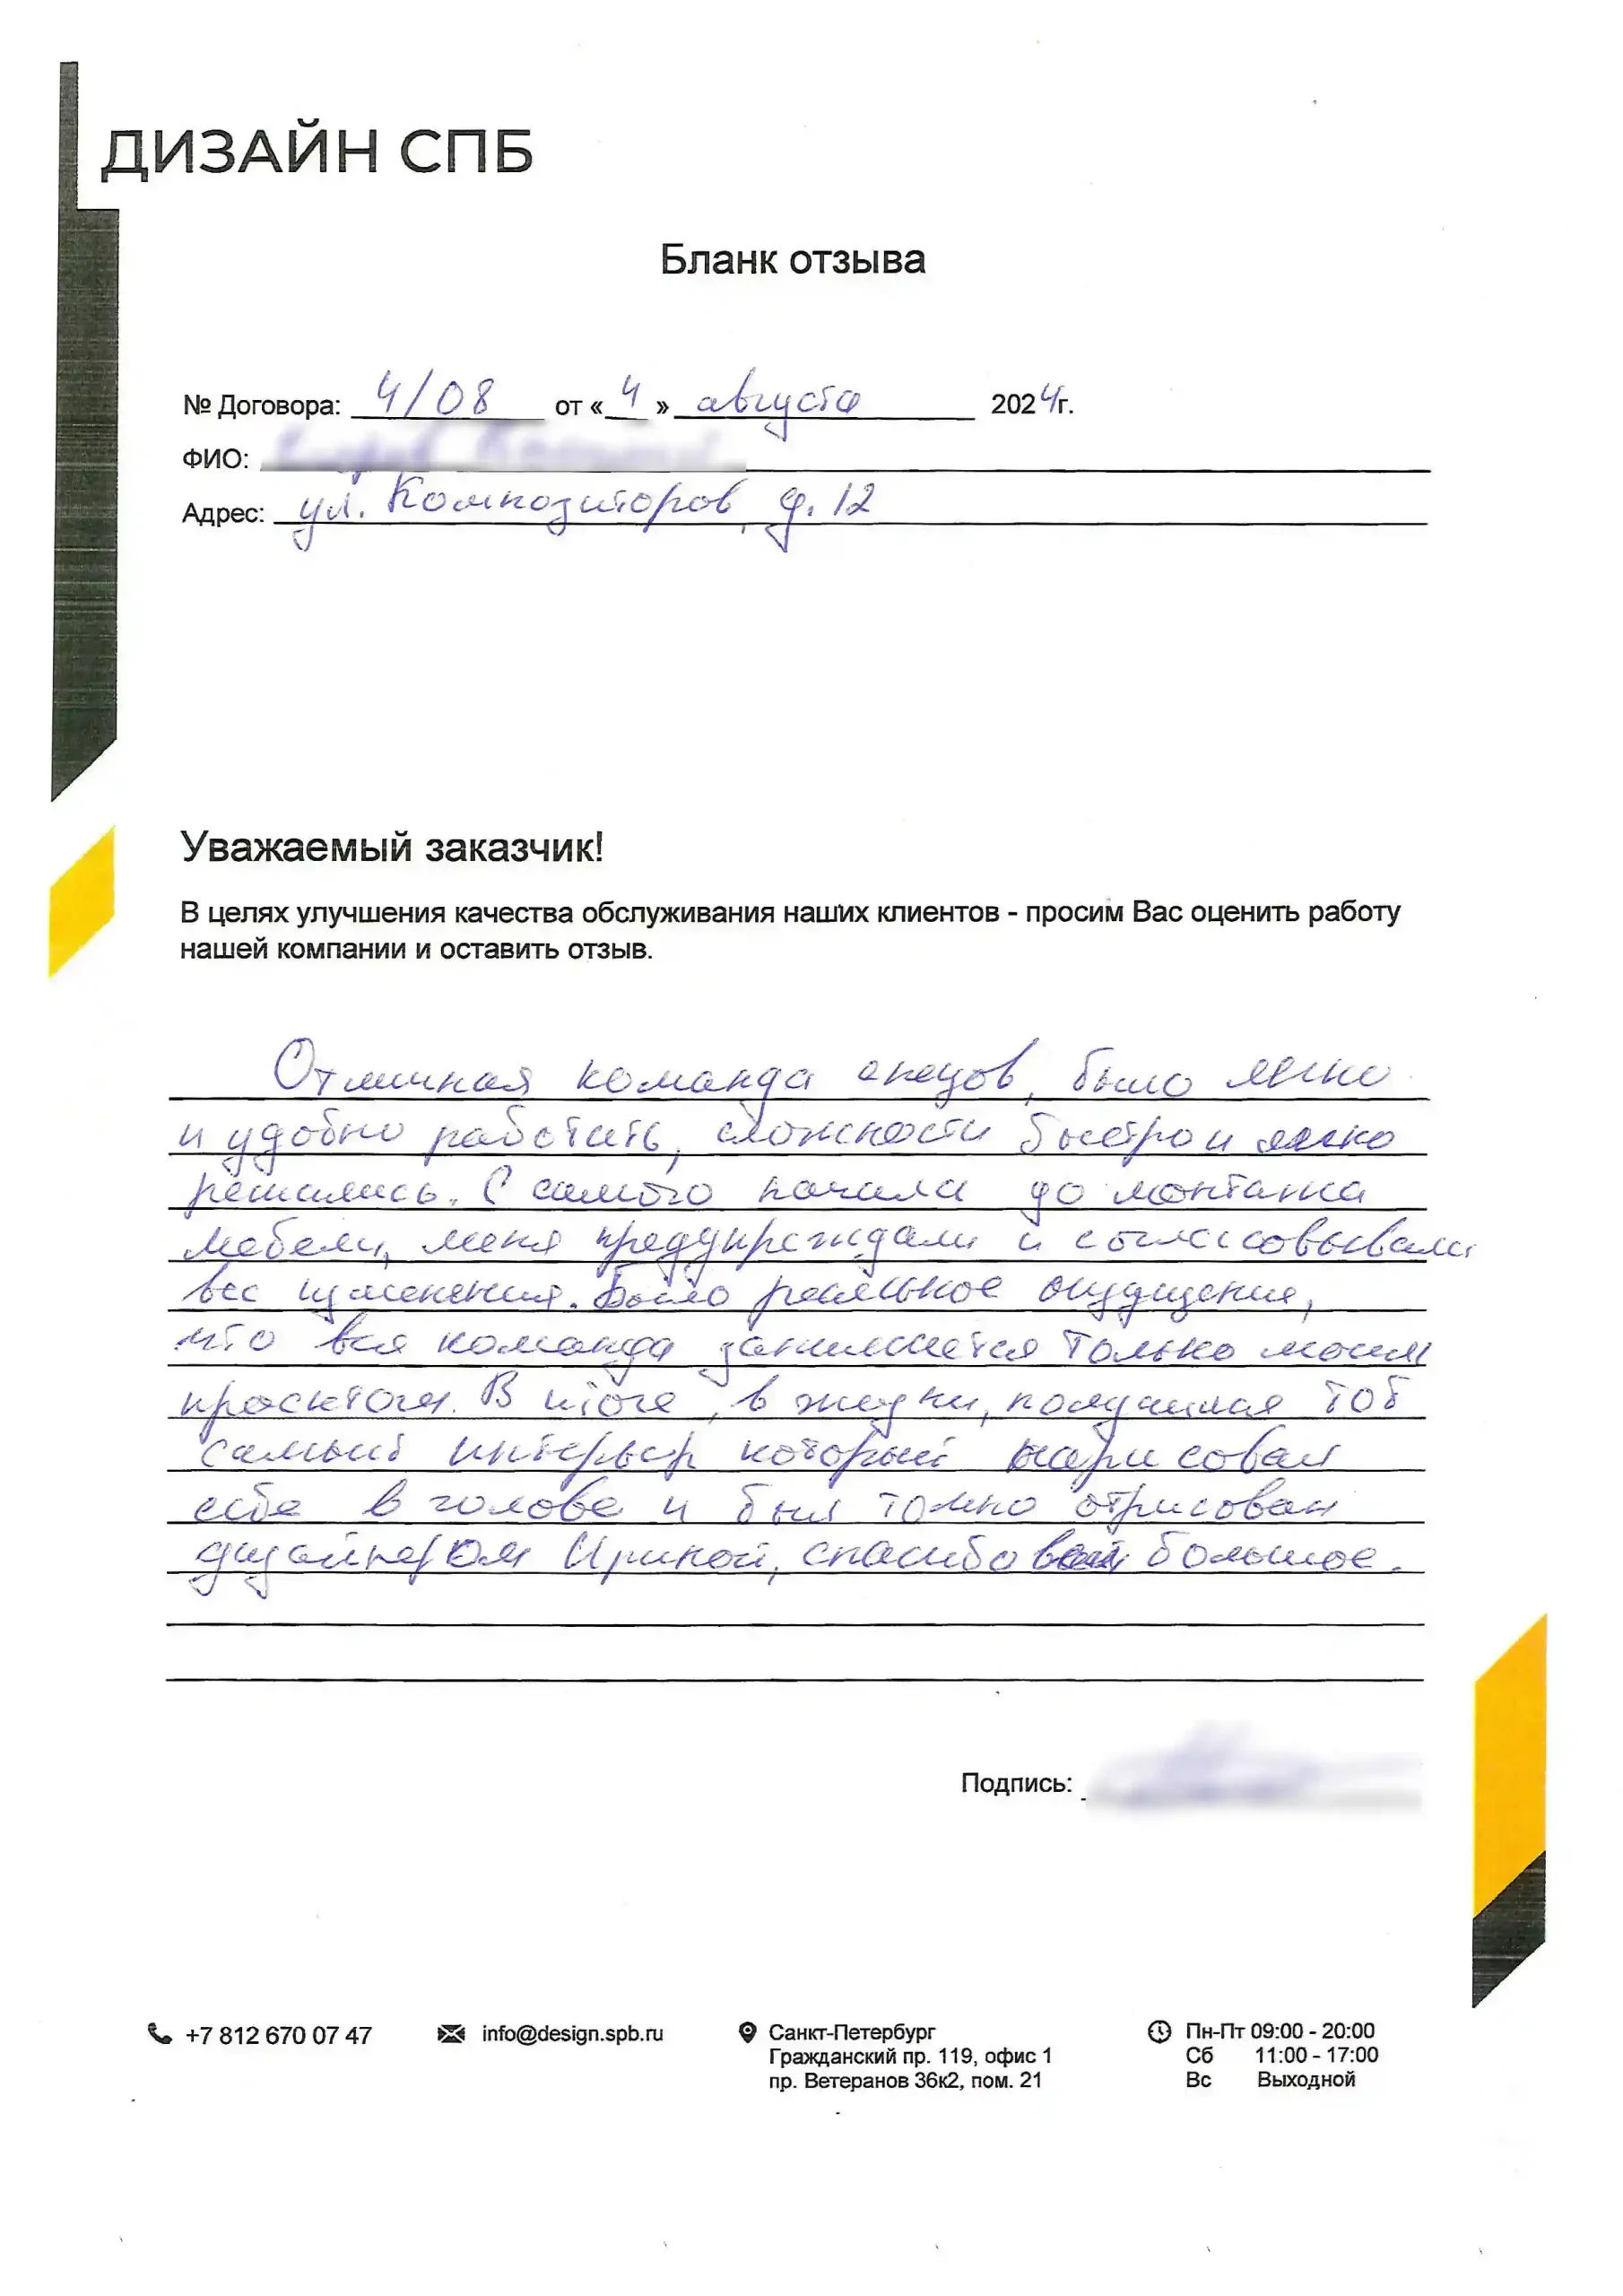 ДИЗАЙН СПБ
Бланк отзыва
№ Договора: 4/08 от «4» августа 2024г.
ФИО:
Адрес: ул. Композиторов, д. 12
Уважаемый заказчик!
В целях улучшения качества обслуживания наших клиентов - просим Вас оценить работу
нашей компании и оставить отзыв.
Отличная команда спецов, было легко
и удобно работать, сложности быстро и легко
решались. С самого начала до монтажа
мебели, меня предупреждали и согласовывали
все изменения. Было реальное ощущение,
что вся команда занимается только моим
проектом. В итоге, в жизни, получился тот
самый интерьер который нарисовал
себе в голове и был точно отрисован
дизайнером Ириной, спасибо вам большое.
Подпись:
+7 812 670 07 47
info@design.spb.ru
Санкт-Петербург
Гражданский пр. 119, офис 1
пр. Ветеранов 36к2, пом. 21
Пн-Пт 09:00 - 20:00
Сб 11:00 - 17:00
Вс Выходной